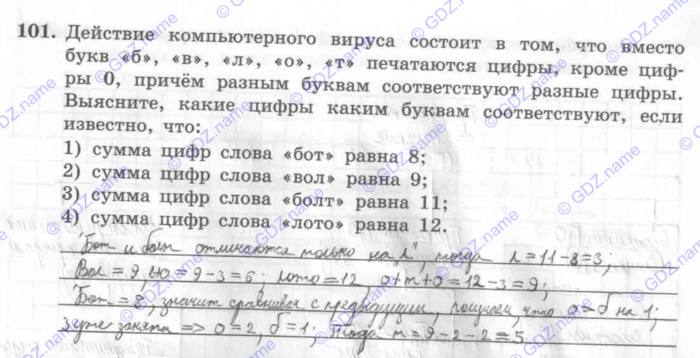 101. Действие компьютерного вируса состоит в том, что вместо
букв «б», «в», «л», «о», «т» печатаются цифры, кроме циф-
ры 0, причём разным буквам соответствуют разные цифры.
Выясните, какие цифры каким буквам соответствуют, если
известно, что:
1) сумма цифр слова «бот» равна 8;
2) сумма цифр слова «вол» равна 9;
3) сумма цифр слова «болт» равна 11;
4) сумма цифр слова «лото» равна 12.
"Бот и болт отличаются только на л", тогда л=11-8=3;
Вол=9, во=9-3=6; лото=12, о+т+о=12-3=9;
Бот=8, значит сравнивая с предыдущим, получаем, что о>б на 1;
3 уже занята => о=2, б=1; Тогда т=9-2-2=5
© GDZ.name